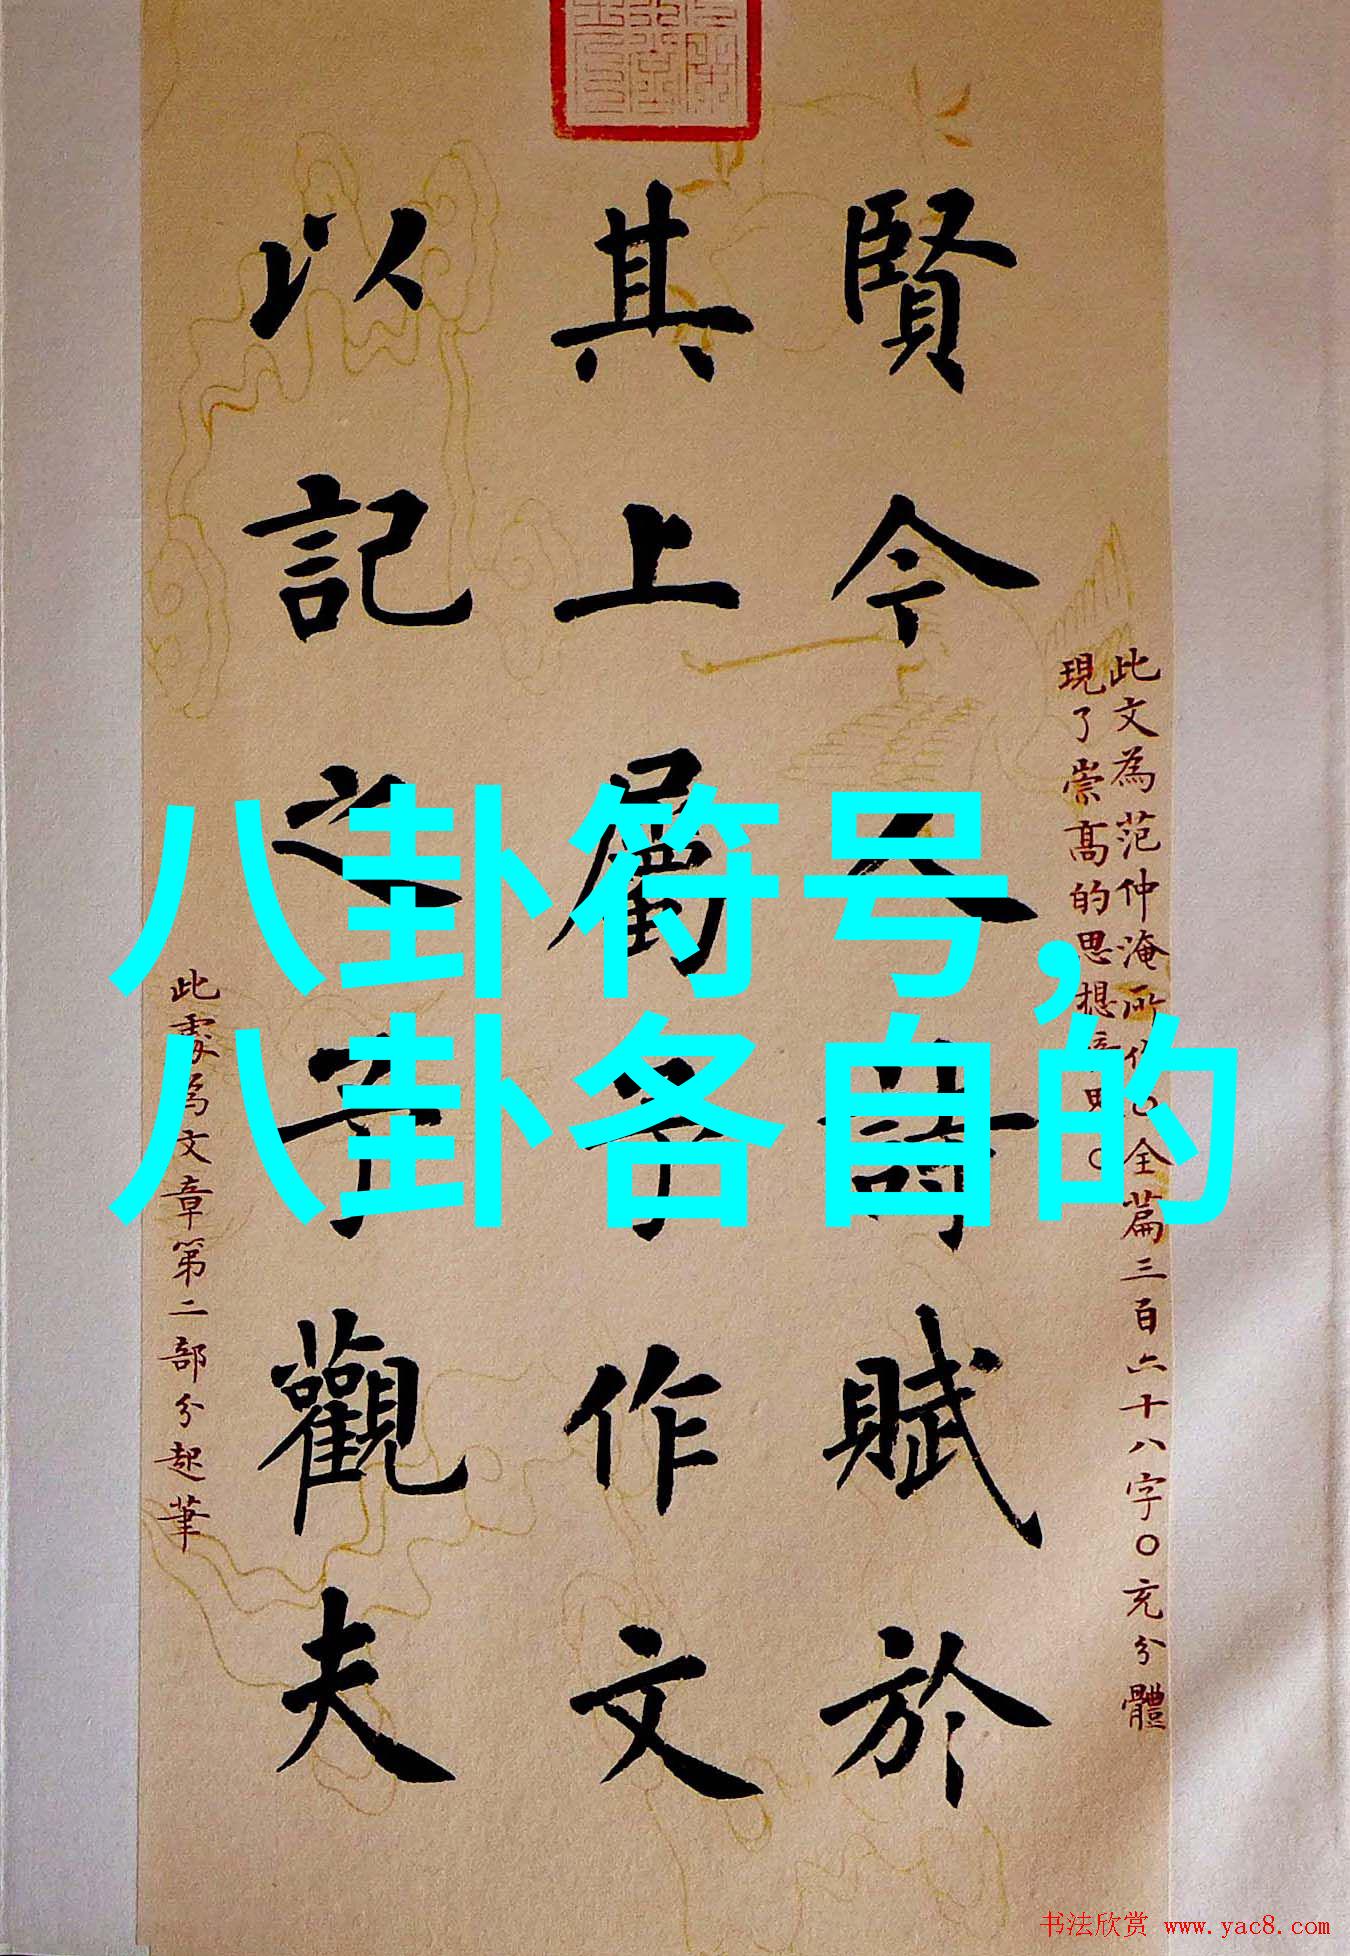 賢今人詩賦於
其上屬予作文
以記之予觀夫
此文為范仲淹所作
全篇三百六十八字○充分體
現了崇高的思想
此處為文章第二部分起筆
八卦符号,
八卦各自的
书法欣赏 www.yac8.com